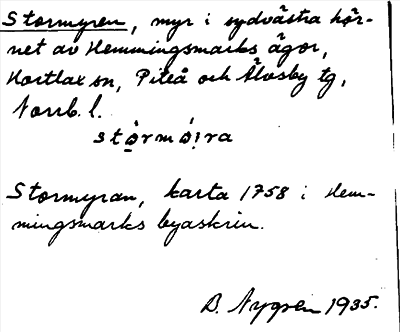 Stormyren, myr i sydvästra hör-
net av Hemmingsmarks ägor,
Hortlax sn, Piteå och Älvsby tg,
Norrb. l.
stọ̀rmọ́i̯ra
Stormyran, karta 1758 i Hem-
mingsmarks byaskrin.
B. Nygren 1935.